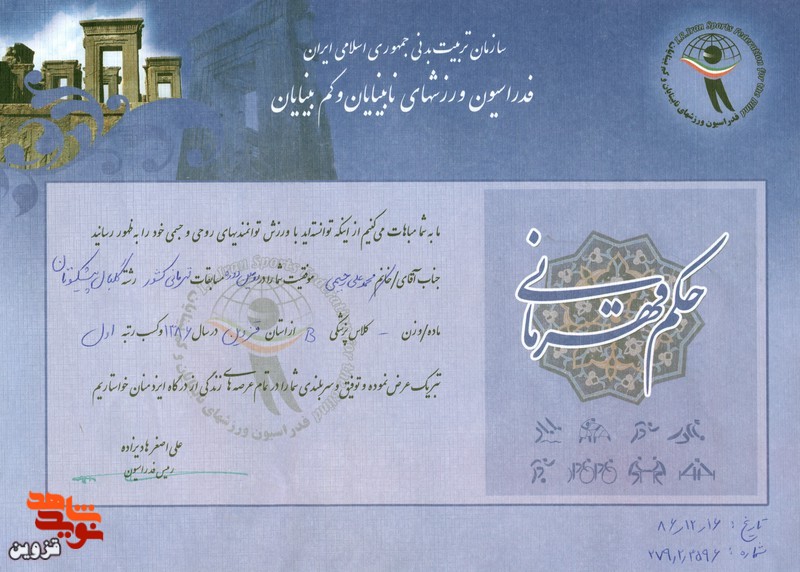 سازمان تربیت بدنی جمهوری اسلامی ایران
فدراسیون ورزشهای نابینایان و کم بینایان
I.R.Iran Sports Federation for the Blind
فدراسیون ورزشهای نابینایان و کم بینایان
ما به شما مباهات می‌کنیم از اینکه توانسته‌اید با ورزش توانمندیهای روحی و جسمی خود را به ظهور رسانید
جناب آقای/خانم محمدعلی رحیمی موفقیت شما را در مسابقات قهرمانی کشور رشته گلبال پیشکسوتان
ماده/وزن - کلاس پزشکی B از استان قزوین در سال ۱۳۸۶ و کسب رتبه اول
تبریک عرض نموده و توفیق و سربلندی شما را در تمام عرصه‌های زندگی از درگاه ایزد منان خواستاریم
علی اصغر هادیزاده
رئیس فدراسیون
حکم قهرمانی
تاریخ: ۸۶,۱۲,۱۶
شماره: ۲۷۹,۲,۳۵۹۶
نوید شاهد
قزوین